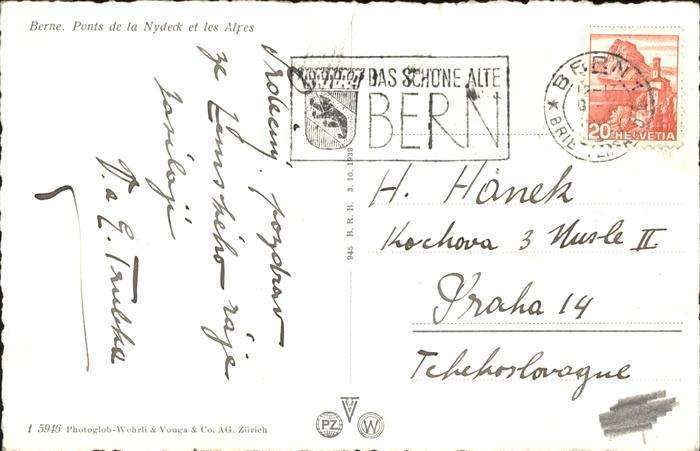 Berne. Ponts de la Nydeck et les Alpes
Srdečný pozdrav
ze Zemského ráje
zasílají
V. a E. Trubka
DAS SCHÖNE ALTE
BERN
BERN 1
20 HELVETIA
945 R.R.R. 3. 10. 1939
H. Hánek
Kochova 3 Nusle II
Praha 14
Tchekoslovaque
1 5946 Photoglob-Wehrli & Vouga & Co. AG. Zürich
PZ
V
W